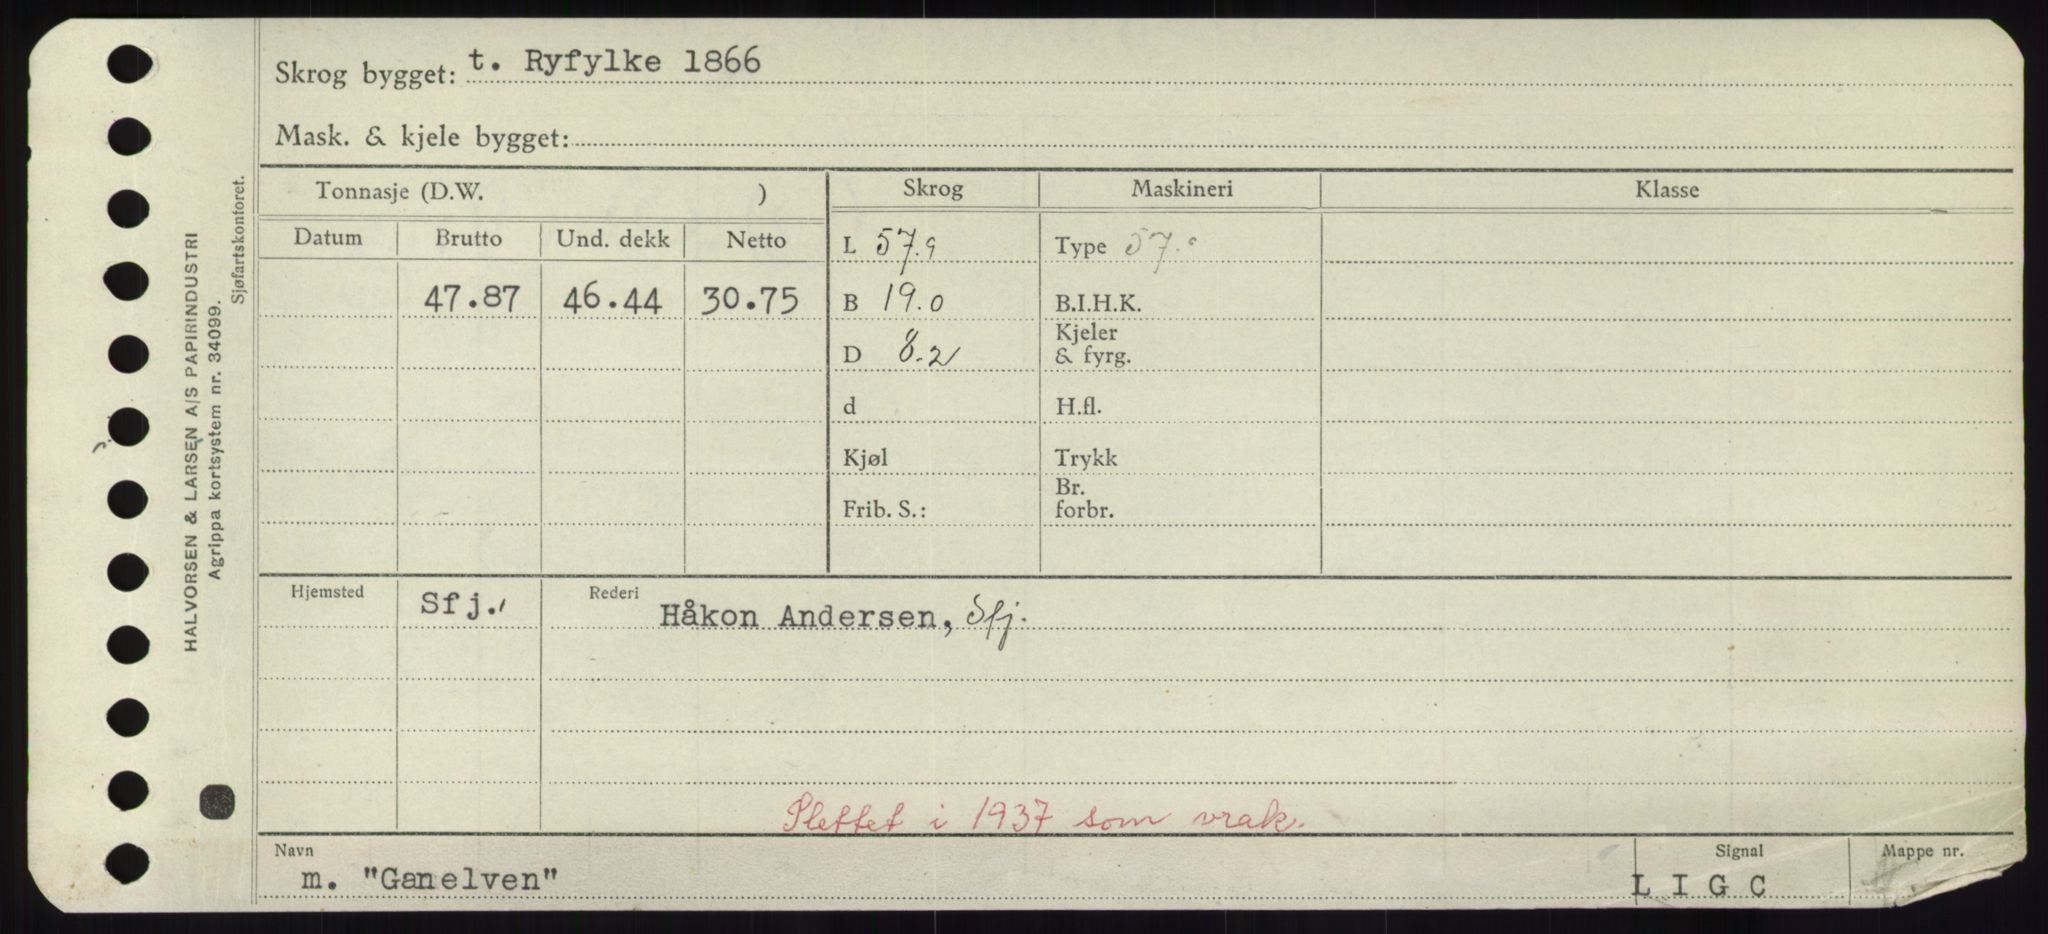 Skrog bygget: t. Ryfylke 1866
Mask. & kjele bygget:
Tonnasje (D.W. )
Skrog
Maskineri
Klasse
Datum
Brutto
Und. dekk
Netto
L 57.9
Type 57.
47.87
46.44
30.75
B 19.0
B.I.H.K.
Kjeler
D 8.2
& fyrg.
d
H.fl.
Kjøl
Trykk
Br.
Frib. S.:
forbr.
Hjemsted
Sfj.
Rederi
Håkon Andersen, Sfj.
Slettet i 1937 som vrak.
Navn
m. "Ganelven"
Signal
L I G C
Mappe nr.
HALVORSEN & LARSEN A/S PAPIRINDUSTRI
Agrippa kortsystem nr. 34099.
Sjøfartskontoret.